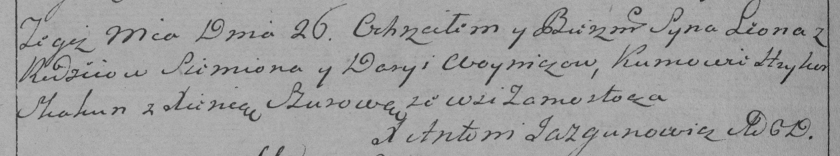 Tegoż Mca Dnia 26. Ochrzciłem y Bierzm Syna Leona z
Rodzicow Siemiona y Daryi Woyniczow, Kumowie Hryhor
Skakun z Xienią Burową ze wsi Zamostocza
X Antoni Jazgunowicz